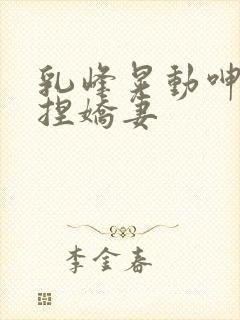 乳峰晃動呻
捏嬌妻
李金春